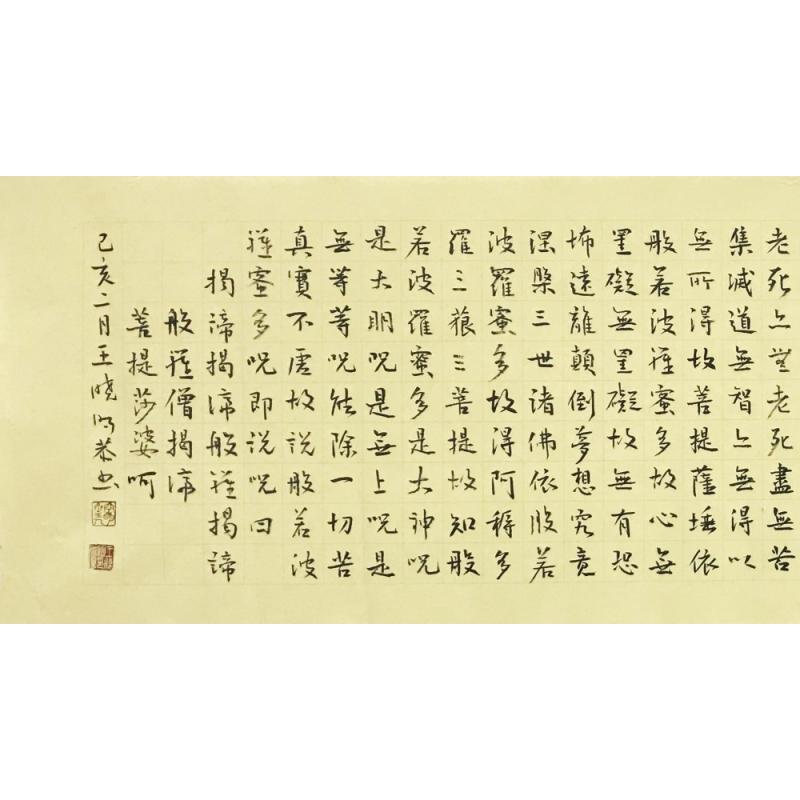 老死亦無老死盡無苦
集滅道無智亦無得以
無所得故菩提薩埵依
般若波羅蜜多故心無
罣礙無罣礙故無有恐
怖遠離顛倒夢想究竟
涅槃三世諸佛依般若
波羅蜜多故得阿耨多
羅三藐三菩提故知般
若波羅蜜多是大神呪
是大明呪是無上呪是
無等等呪能除一切苦
真實不虛故說般若波
羅蜜多呪即說呪曰
揭諦揭諦般羅揭諦
般羅僧揭諦
菩提莎婆呵
己亥二月王晓明恭书